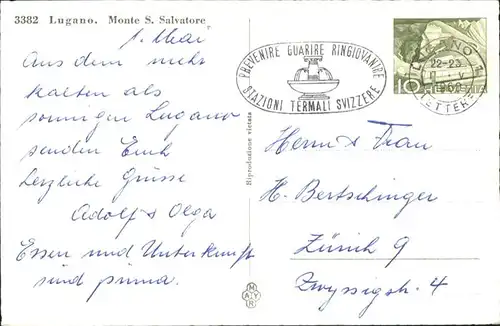 3382 Lugano. Monte S. Salvatore
1. Mai
Aus dem mehr
kalten als
sonnigen Lugano
senden Euch
herzliche Grüsse
Adolf & Olga
Essen und Unterkunft
sind prima.
Riproduzione vietata
PREVENIRE GUARIRE RINGIOVANIRE
STAZIONI TERMALI SVIZZERE
LUGANO 1
22-23
LETTERE
10 HELVETIA
Herrn & Frau
H. Bertschinger
Zürich 9
Zwyssigstr. 4
MAYR